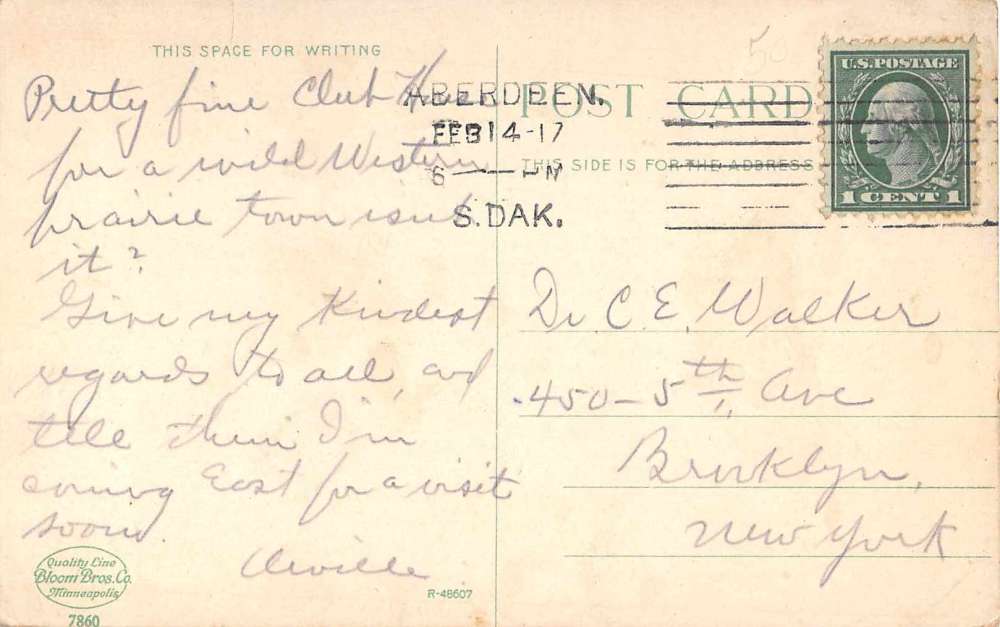 THIS SPACE FOR WRITING
Pretty fine Club House
for a wild Western
prairie town isn't
it?
Give my Kindest
regards to all, and
tell them I'm
coming East for a visit
soon.
Orville
Quality Line
Bloom Bros. Co.
Minneapolis
7860
R-48607
ABERDEEN,
FEB 14-17
6 — PM
S. DAK.
POST CARD
THIS SIDE IS FOR THE ADDRESS
50
U.S. POSTAGE
1 CENT 1
Dr. C. E. Walker
450-5th Ave
Brooklyn,
New York